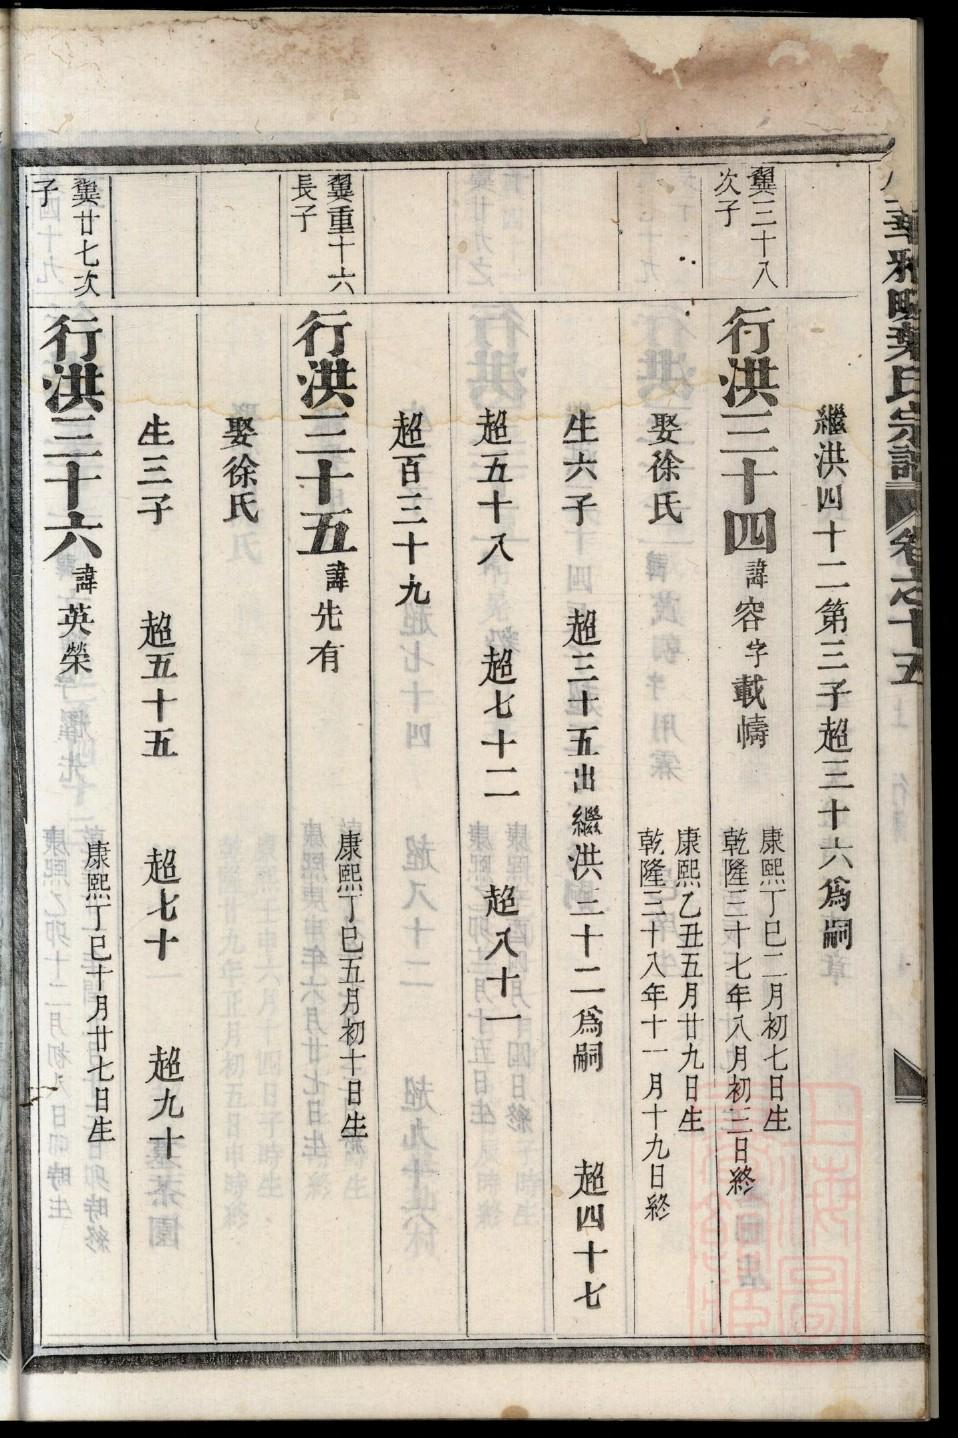 華雅畈葉氏宗譜 卷之十五
繼洪四十二第三子超三十六為嗣
翼三十八
次子
行洪三十四 諱容字載幬
康熙丁巳二月初七日生
乾隆三十七年八月初三日終
娶徐氏
康熙乙丑五月廿九日生
乾隆三十八年十一月十九日終
生六子 超三十五出繼洪三十二為嗣 超四十七
超五十八 超七十二 超八十一
超百三十九
翼重十六
長子
行洪三十五 諱先有
康熙丁巳五月初十日生
娶徐氏
生三子 超五十五 超七十 超九十
翼廿七次
子
行洪三十六 諱英榮
康熙丁巳十月廿七日生